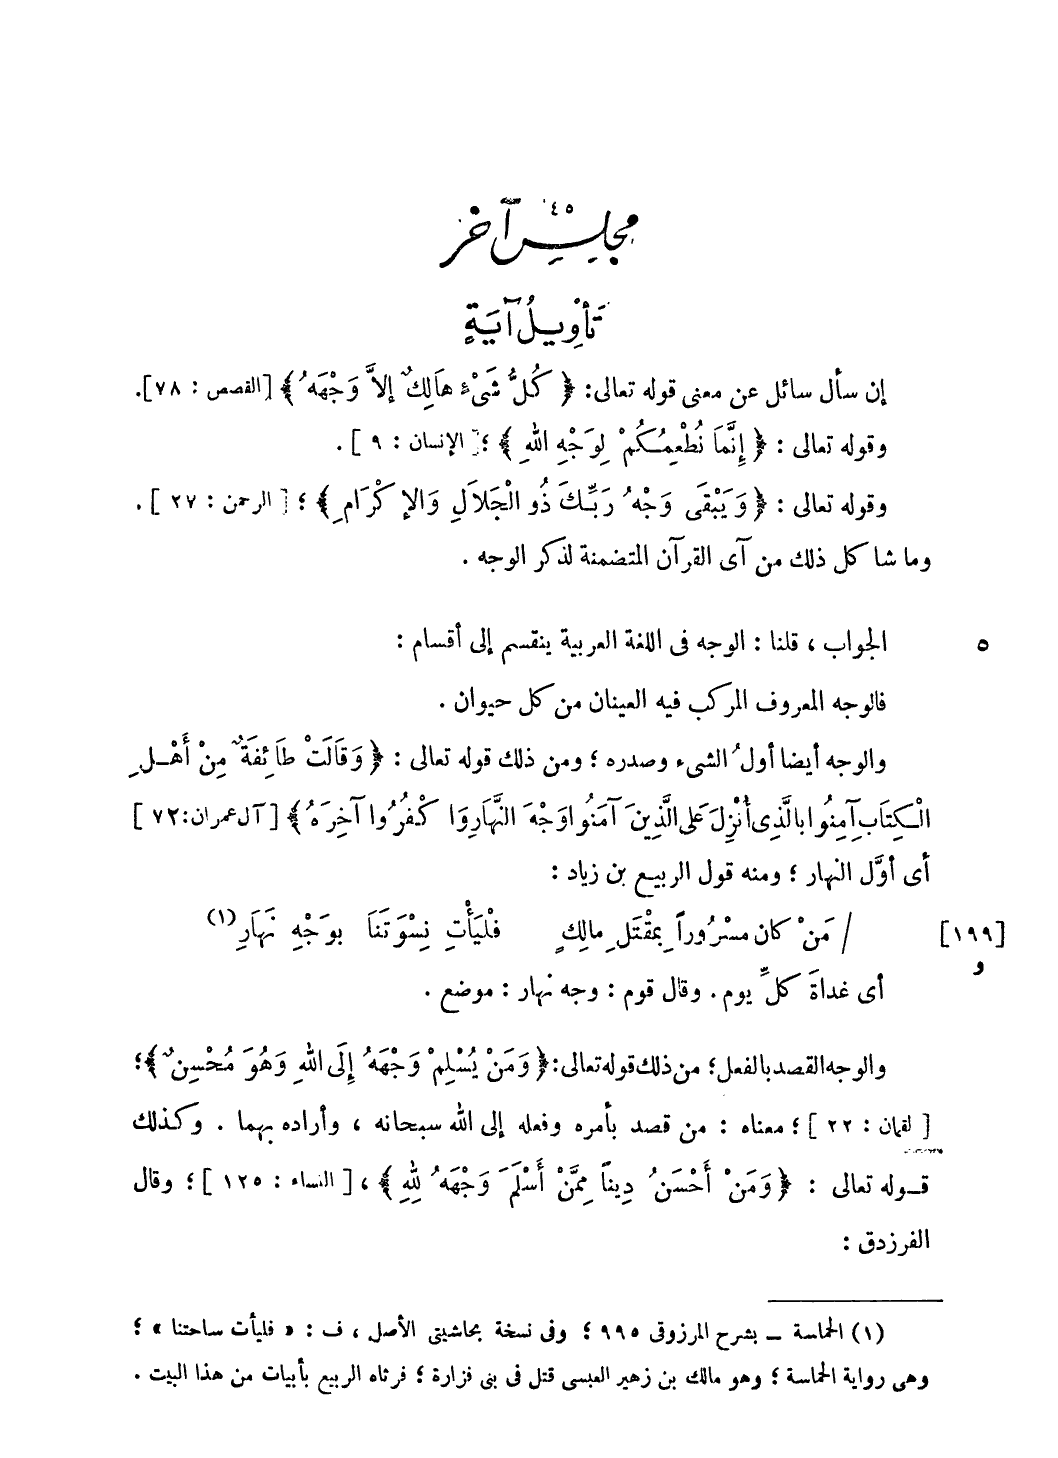 ٤٥
مجلس آخر
تَأْوِيلُ آيَةٍ
إن سأل سائل عن معنى قوله تعالى: ﴿ كُلُّ شَىْءٍ هَالِكٌ إلاَّ وَجْهَهُ ﴾ [القصص : ٧٨].
وقوله تعالى : ﴿ إِنَّمَا نُطْعِمُكُمْ لِوَجْهِ اللهِ ﴾ ؛ [ الإنسان : ٩ ] .
وقوله تعالى : ﴿ وَيَبْقَى وَجْهُ رَبِّكَ ذُو الْجَلاَلِ وَالإِكْرَامِ ﴾ ؛ [ الرحمن : ٢٧ ] .
وما شاكل ذلك من آى القرآن المتضمنة لذكر الوجه .
الجواب ، قلنا : الوجه فى اللغة العربية ينقسم إلى أقسام : ٥
فالوجه المعروف المركب فيه العينان من كل حيوان .
والوجه أيضا أولُ الشىء وصدره ؛ ومن ذلك قوله تعالى : ﴿ وَقَالَتْ طَائِفَةٌ مِنْ أَهْلِ
الْكِتَابِ آمِنُوا بالَّذِى أُنْزِلَ عَلى الَّذِينَ آمَنُوا وَجْهَ النَّهَارِ وَا كْفُرُوا آخِرَهُ ﴾ [ آل عمران: ٧٢ ]
أى أوَّل النهار ؛ ومنه قول الربيع بن زياد :
/ مَنْ كان مسْرُوراً بِمَقْتَلِ مالِكٍ فلْيَأْتِ نِسْوَتَنَا بوَجْهِ نَهَارِ (١) [ ١٩٩ ]
و
أى غداةَ كلِّ يوم . وقال قوم : وجه نهار : موضع .
والوجه القصد بالفعل ؛ من ذلك قوله تعالى: ﴿ وَمَنْ يُسْلِمْ وَجْهَهُ إلَى اللهِ وَهُوَ مُحْسِنٌ ﴾ ؛
[ لقمان : ٢٢ ] ؛ معناه : من قصد بأمره وفعله إلى الله سبحانه ، وأراده بهما . وكذلك
قوله تعالى : ﴿ وَمَنْ أَحْسَنُ دِيناً مِمَّنْ أَسْلَمَ وَجْهَهُ لِلهِ ﴾ ، [ النساء : ١٢٥ ] ؛ وقال
الفرزدق :
(١) الحماسة – بشرح المرزوقى ٩٩٥ ؛ وفى نسخة بحاشيتى الأصل ، ف : « فليأت ساحتنا » ؛
وهى رواية الحماسة ؛ وهو مالك بن زهير العبسى قتل فى بنى فزارة ؛ فرثاه الربيع بأبيات من هذا البيت .